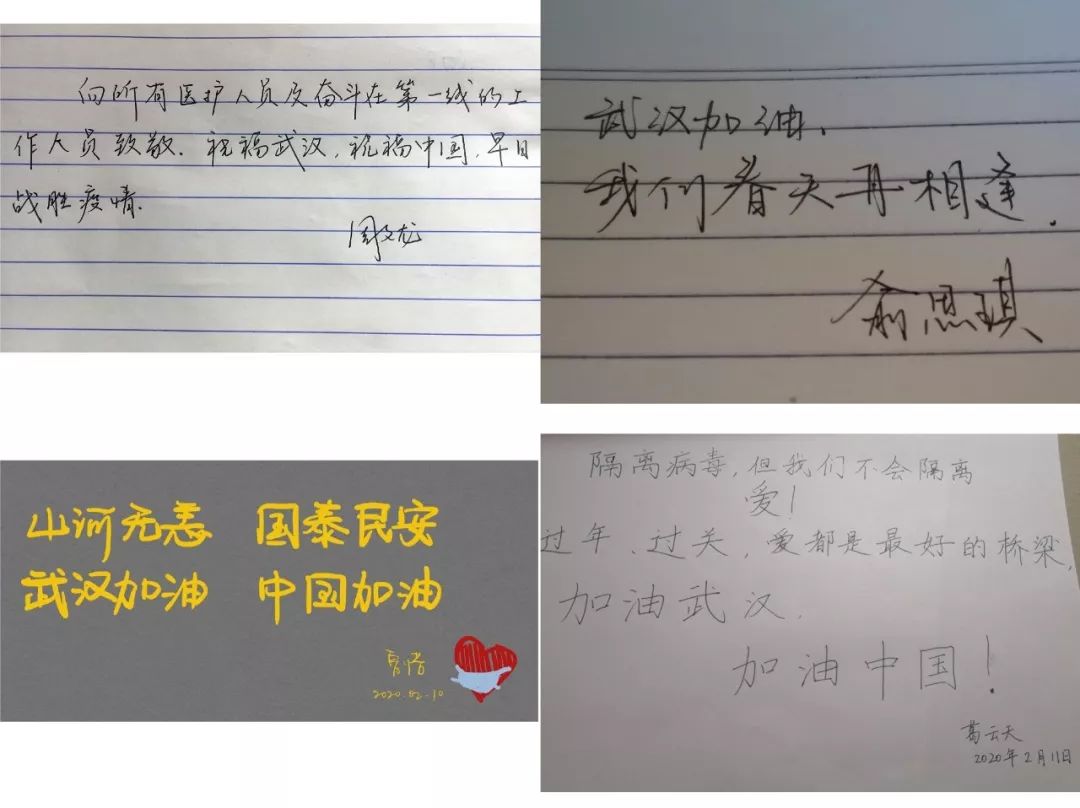 向所有医护人员及奋斗在第一线的工
作人员致敬.祝福武汉,祝福中国,早日
战胜疫情.
周文龙
武汉加油,
我们春天再相逢.
俞思琪
山河无恙 国泰民安
武汉加油 中国加油
2020.02.10
隔离病毒,但我们不会隔离
爱!
过年、过关,爱都是最好的桥梁,
加油武汉.
加油中国!
葛云天
2020年2月11日